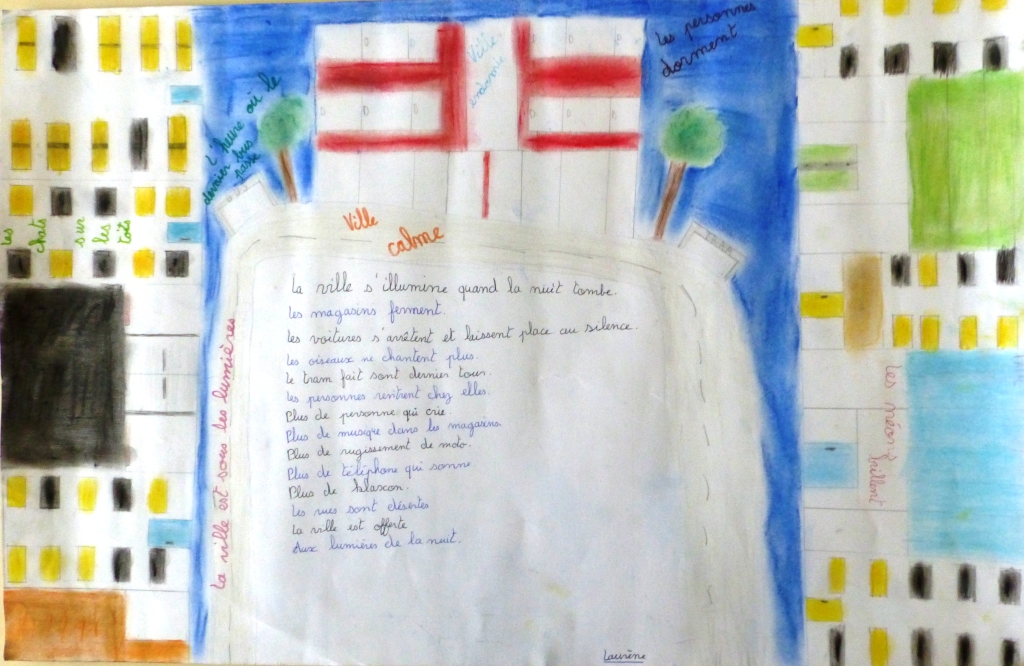 Les personnes
dorment
Ville
endormie
L'heure où le
dernier bus
passe
Les
chats
sur
les
toits
Ville
calme
La ville s'illumine quand la nuit tombe.
Les magasins ferment.
Les voitures s'arrêtent et laissent place au silence.
Les oiseaux ne chantent plus.
Le tram fait sont dernier tour.
Les personnes rentrent chez elles.
Plus de personne qui crie.
Plus de musique dans les magasins.
Plus de rugissement de moto.
Plus de téléphone qui sonne
Plus de klaxon.
Les rues sont désertes
La ville est offerte
Aux lumières de la nuit.
La ville est sous les lumières
Les néons brillent
Laurène